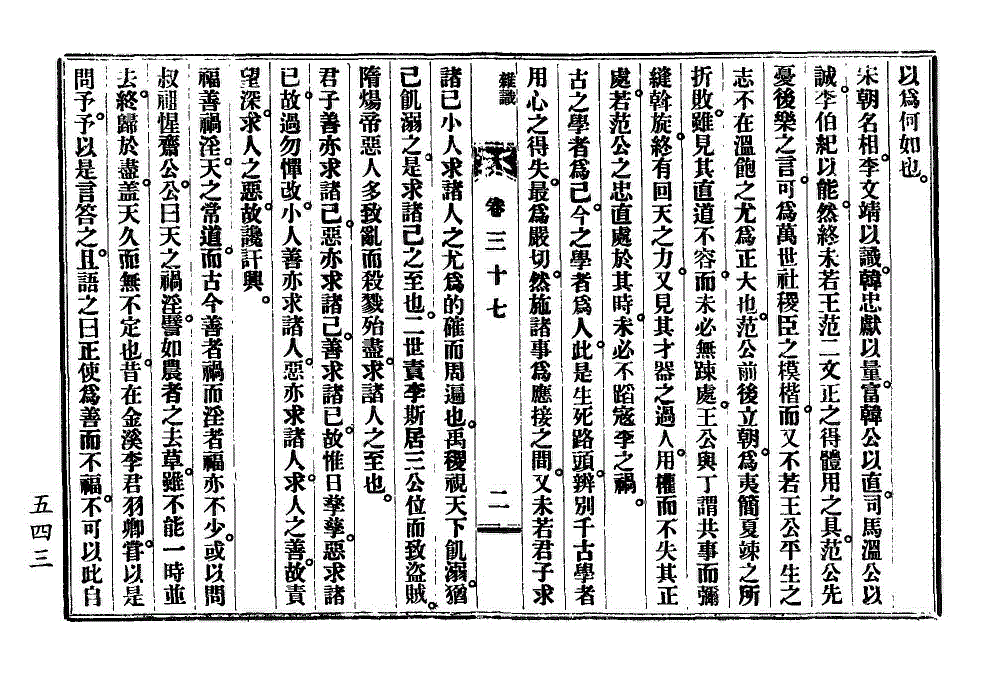 以爲何如也。
宋朝名相。李文靖以識。韓忠獻以量。富韓公以直。司馬溫公以
誠。李伯紀以能。然終未若王范二文正之得體用之具。范公先
憂後樂之言。可爲萬世社稷臣之模楷。而又不若王公平生之
志不在溫飽之尤爲正大也。范公前後立朝。爲夷簡夏竦之所
折敗。雖見其直道不容。而未必無踈處。王公與丁謂共事而彌
縫斡旋。終有回天之力。又見其才器之過人。用權而不失其正
處。若范公之忠直處於其時。未必不蹈寇李之禍。
古之學者爲己。今之學者爲人。此是生死路頭。辨別千古學者
用心之得失。最爲嚴切。然施諸事爲應接之間。又未若君子求
雜識
卷三十七
二
諸己小人求諸人之尤爲的確而周遍也。禹稷視天下飢溺。猶
己飢溺之。是求諸己之至也。二世責李斯居三公位而致盜賊。
隋煬帝惡人多致亂而殺戮殆盡。求諸人之至也。
君子善亦求諸己。惡亦求諸己。善求諸己。故惟日孳孳。惡求諸
己。故過勿憚改。小人善亦求諸人。惡亦求諸人。求人之善。故責
望深。求人之惡。故讒訐興。
福善禍淫。天之常道。而古今善者禍而淫者福亦不少。或以問
叔禰惺齋公。公曰天之禍淫。譬如農者之去草。雖不能一時並
去。終歸於盡。盖天久而無不定也。昔在金溪李君羽卿。嘗以是
問予。予以是言答之。且語之曰正使爲善而不福。不可以此自
五四三